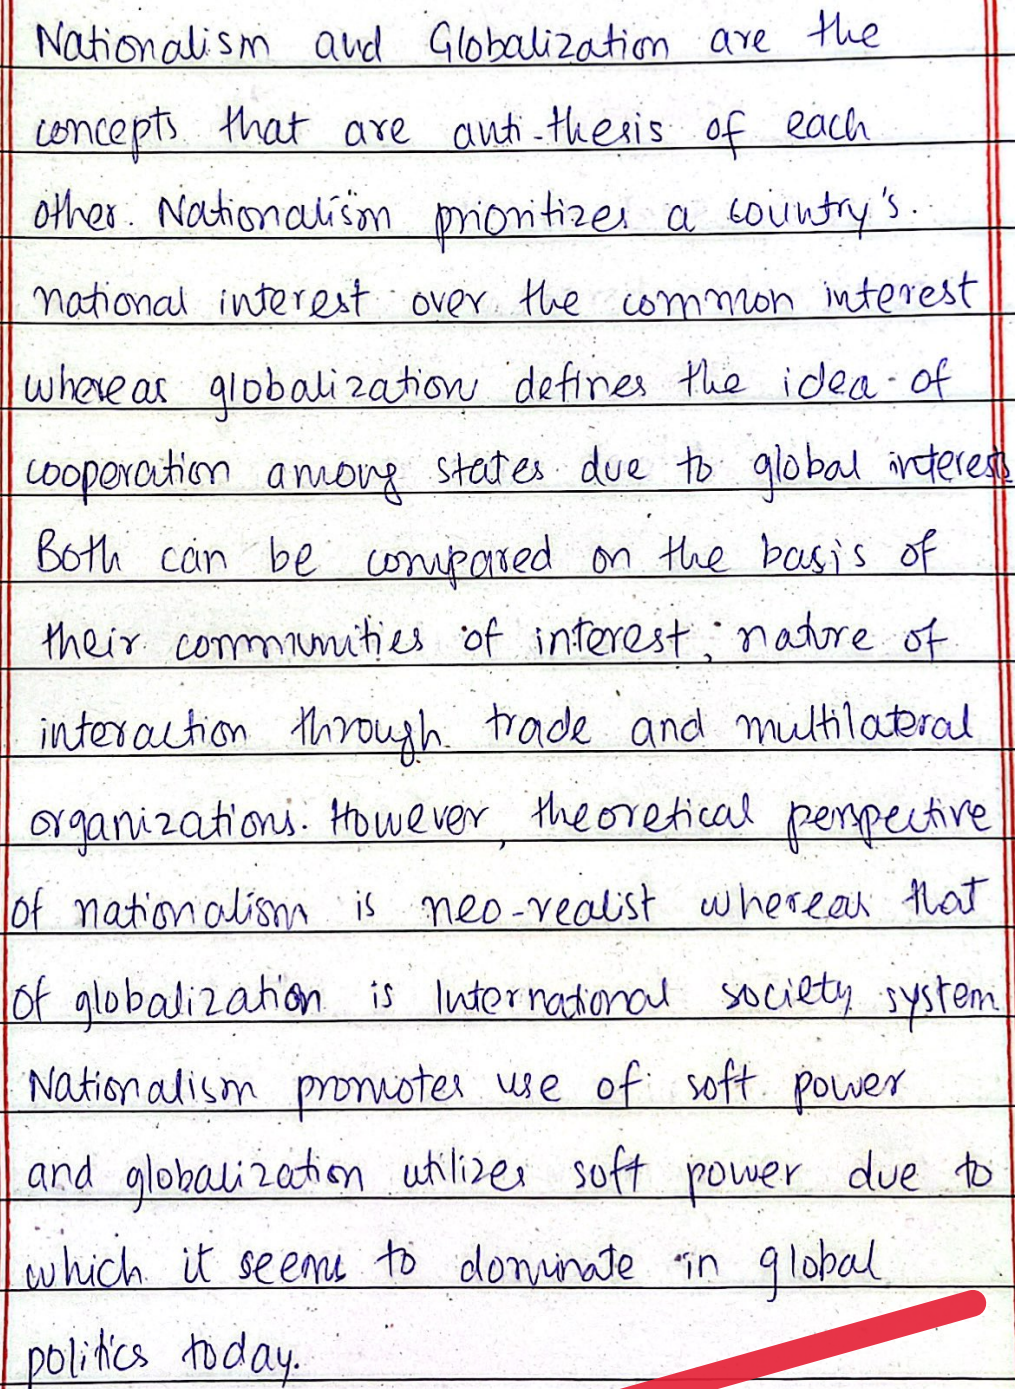 Nationalism and Globalization are the
concepts that are anti-thesis of each
other. Nationalism prioritizes a country's
national interest over the common interest
whereas globalization defines the idea of
cooperation among states due to global interests
Both can be compared on the basis of
their communities of interest, nature of
interaction through trade and multilateral
organizations. However, theoretical perspective
of nationalism is neo-realist whereas that
of globalization is International society system
Nationalism promotes use of soft power
and globalization utilizes soft power due to
which it seems to dominate in global
politics today.